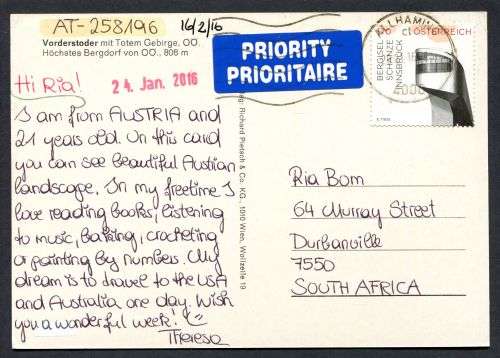 AT-258196
16/2/16
Vorderstoder mit Totem Gebirge, OÖ.
Höchstes Bergdorf von OÖ., 808 m
PRIORITY
PRIORITAIRE
ÖSTERREICH
BERGISEL
SCHANZE
INNSBRUCK
Hi Ria!
24. Jan. 2016
I am from AUSTRIA and
21 years old. On this card
you can see beautiful Austrian
landscape. In my freetime I
love reading books, listening
to music, baking, crocheting
or painting by numbers. My
dream is to travel to the USA
and Australia one day. Wish
you a wonderful week!
Theresa
Richard Pietsch & Co. KG., 1910 Wien, Wollzeile 19
Ria Bom
64 Murray Street
Durbanville
7550
SOUTH AFRICA